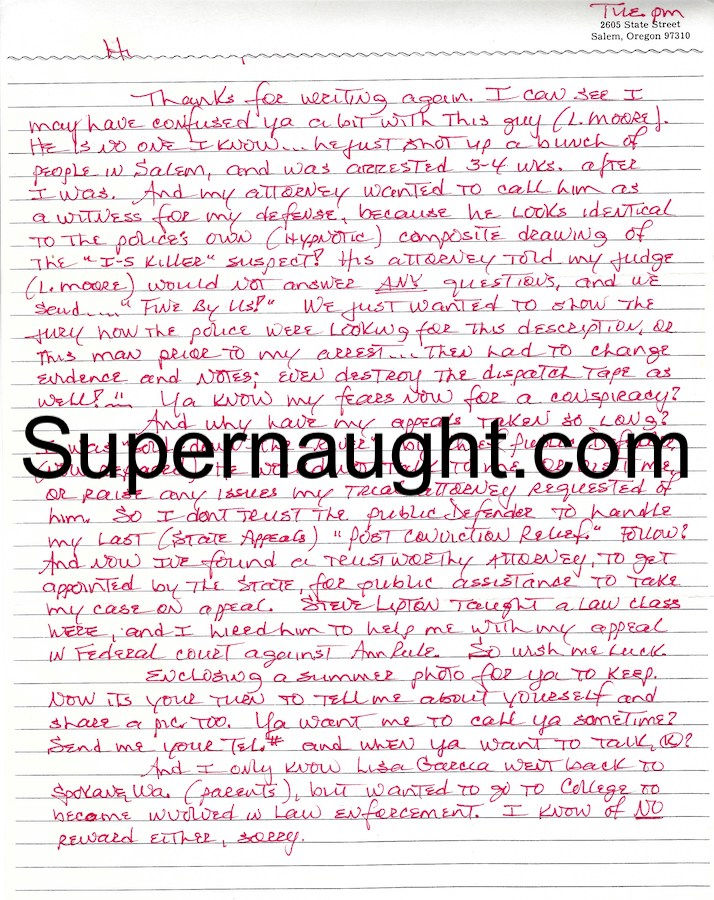 Tue. pm
2605 State Street
Salem, Oregon 97310
Hi
Thanks for writing again. I can see I
may have confused ya a bit with this guy (L. Moore).
He is no one I know... he just shot up a bunch of
people in Salem, and was arrested 3-4 wks. after
I was. And my attorney wanted to call him as
a witness for my defense, because he looks identical
to the police's own (hypnotic) composite drawing of
the "I-5 Killer" suspect! His attorney told my judge
(L. Moore) would not answer ANY questions, and we
said.... "Fine By Us!" We just wanted to show the
jury how the police were looking for this description, or
this man prior to my arrest... then had to change
evidence and notes; even destroy the dispatch tape as
well!... Ya know my fears now for a conspiracy?
And why have my appeals taken so long?
Supernaught.com
or raise any issues my trial attorney requested of
him. So I don't trust the public Defender to handle
my last (State Appeals) "Post Conviction Relief." Follow?
And now I've found a trustworthy attorney, to get
appointed by the state, for public assistance to take
my case on appeal. Steve Lipton taught a law class
here, and I hired him to help me with my appeal
in Federal court against Ann Rule. So wish me luck.
Enclosing a summer photo for ya to keep.
Now its your turn to tell me about yourself and
share a pic too. Ya want me to call ya sometime?
Send me your Tel.# and when ya want to talk, OK?
And I only know Lisa Garcia went back to
Spokane, Wa. (parents), but wanted to go to College to
become involved in Law Enforcement. I know of NO
reward either, sorry.